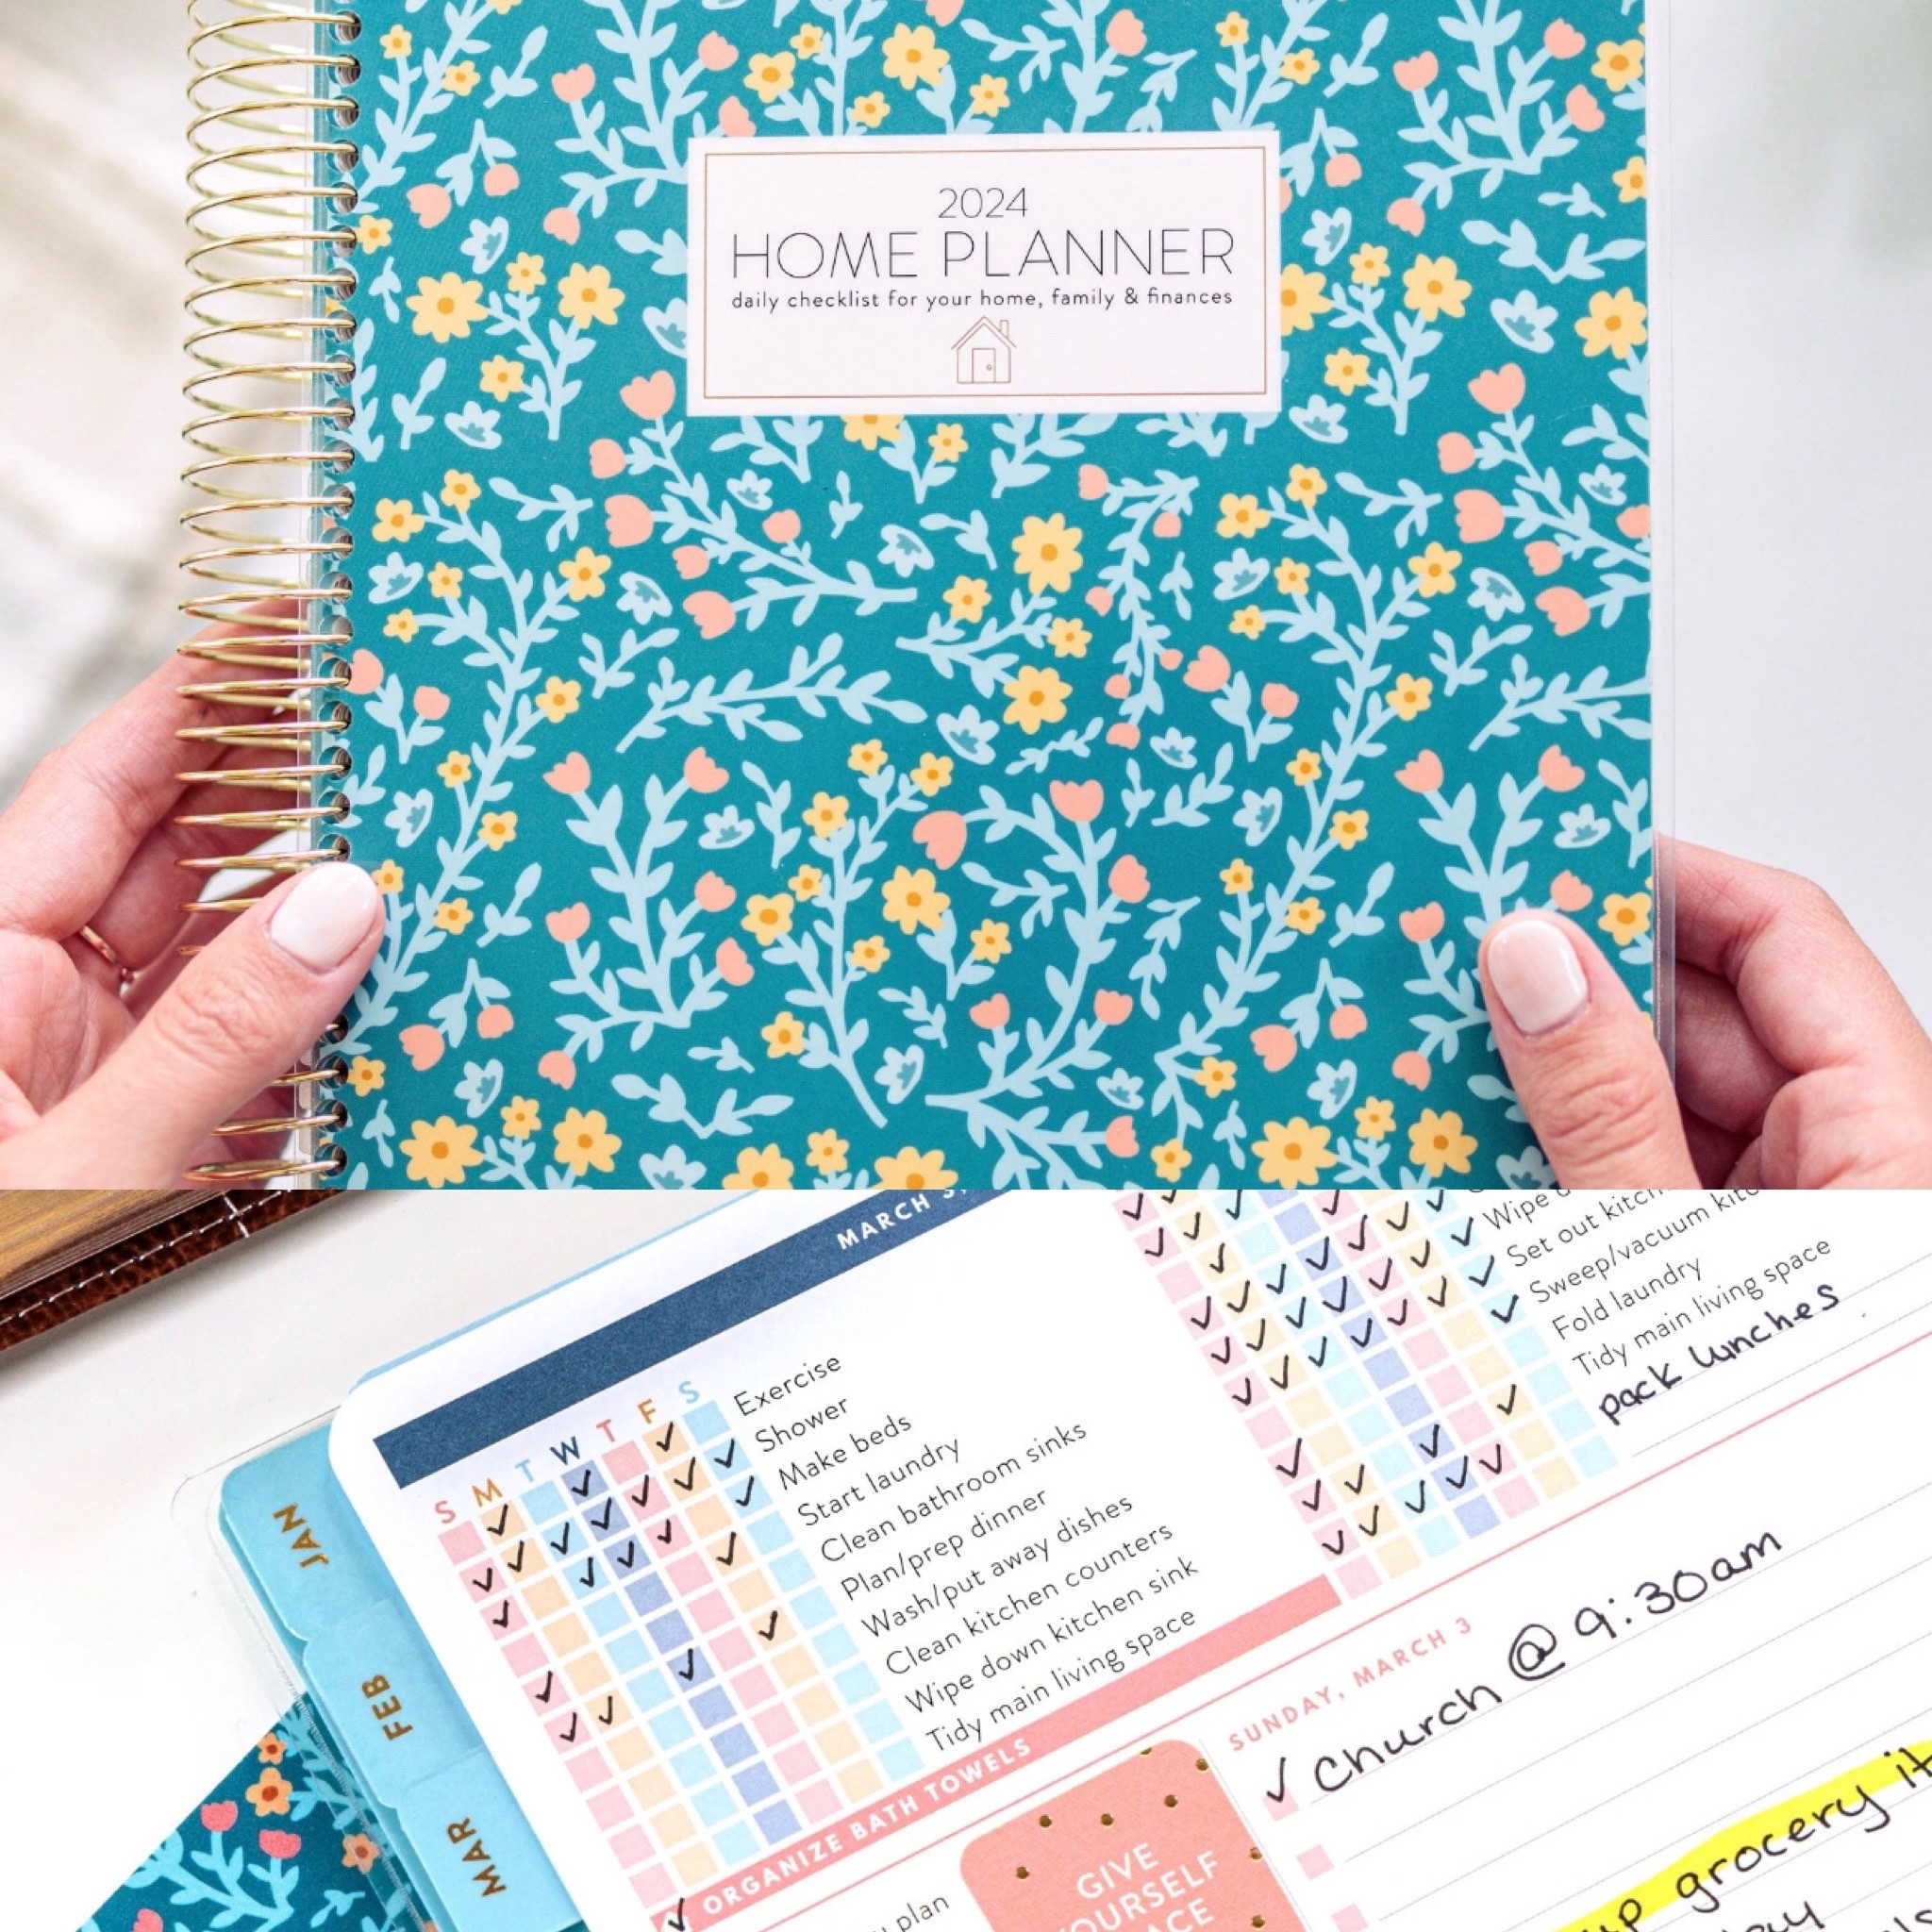 2024
HOME PLANNER
daily checklist for your home, family & finances
MARCH 3,
S M T W T F S
Exercise
Shower
Make beds
Start laundry
Clean bathroom sinks
Plan/prep dinner
Wash/put away dishes
Clean kitchen counters
Wipe down kitchen sink
Tidy main living space
Wipe
Set out
Sweep/vacuum
Fold laundry
Tidy main living space
pack lunches
JAN
FEB
MAR
ORGANIZE BATH TOWELS
plan
GIVE
YOURSELF
SUNDAY, MARCH 3
Church @ 9:30am
grocery